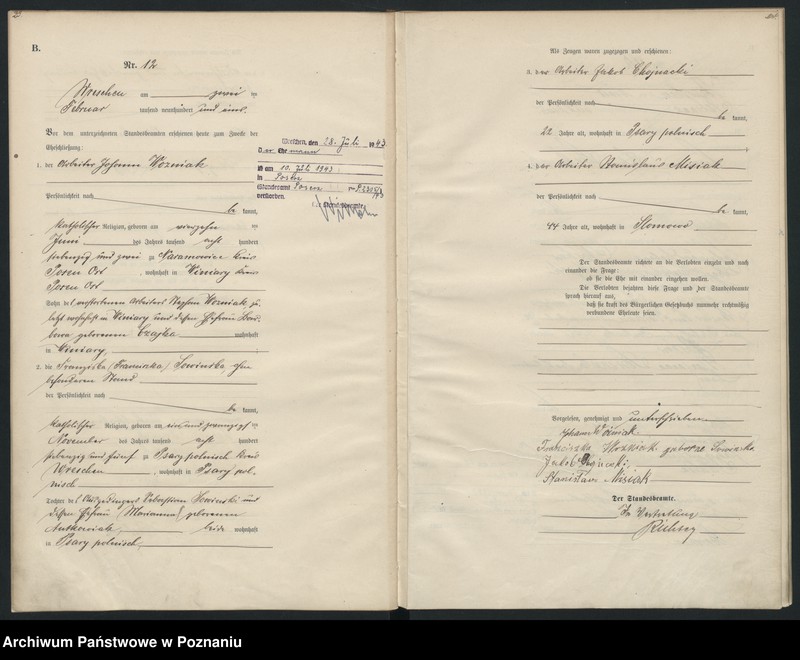 B.
Nr. 12
Wreschen am zwei ten
Februar tausend neunhundert und eins.
Vor dem unterzeichneten Standesbeamten erschienen heute zum Zwecke der
Eheschließung:
1. der Arbeiter Johann Wozniak
Persönlichkeit nach
be kannt,
katholischer Religion, geboren am vierzehn ten
Juni des Jahres tausend acht hundert
siebenzig und zwei zu Naramowice Kreis
Posen Ost, wohnhaft in Winiary Kreis
Posen Ost
Sohn des verstorbenen Arbeiters Stephan Wozniak zu-
letzt wohnhaft in Winiary und dessen Ehefrau
geborenen Czajka wohnhaft
in Winiary
2. die Franziska (Franciszka) Sowinska, ohne
besonderen Stand
der Persönlichkeit nach
be kannt,
katholischer Religion, geboren am ein und zwanzigsten
November des Jahres tausend acht hundert
siebenzig und fünf zu Psary polnisch Kreis
Wreschen, wohnhaft in Psary pol-
nisch
Tochter des Ausgedingers Sebastian Sowinski und
dessen Ehefrau (Marianna) geborenen
Antkowiak beide wohnhaft
in Psary polnisch
Wreschen, den 28. Juli 1943
Der Ehemann
ist am 10. Juli 1943
in Posen
Standesamt Posen
verstorben.
Als Zeugen waren zugezogen und erschienen:
3. der Arbeiter Jakob Chojnacki
der Persönlichkeit nach
be kannt,
22 Jahre alt, wohnhaft in Psary polnisch
4. der Arbeiter Stanislaus Misiak
der Persönlichkeit nach
be kannt,
44 Jahre alt, wohnhaft in Slomowo
Der Standesbeamte richtete an die Verlobten einzeln und nach
einander die Frage:
ob sie die Ehe mit einander eingehen wollen.
Die Verlobten bejahten diese Frage und der Standesbeamte
sprach hierauf aus,
daß sie kraft des Bürgerlichen Gesetzbuchs nunmehr rechtmäßig
verbundene Eheleute seien.
Vorgelesen, genehmigt und unterschrieben
Johann Wozniak
Franciszka Wozniak geborne Sowinska
Jakob Chojnacki
Stanisław Misiak
Der Standesbeamte.
In Vertretung
Archiwum Państwowe w Poznaniu